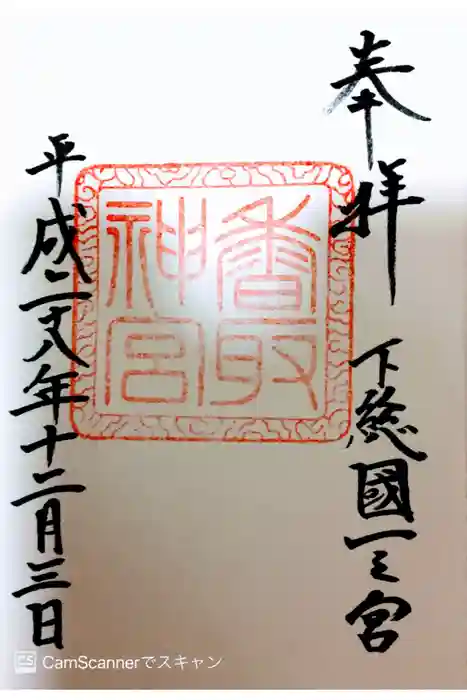 奉拝
下総國一之宮
香取
神宮
平成二十八年十二月三日
CamScannerでスキャン